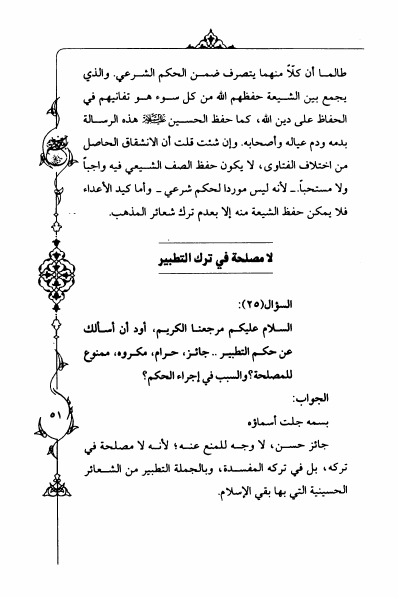 طالما أن كلّاً منهما يتصرف ضمن الحكم الشرعي. والذي
يجمع بين الشيعة حفظهم الله من كل سوء هو تفانيهم في
الحفاظ على دين الله، كما حفظ الحسين عليه السلام هذه الرسالة
بدمه ودم عياله وأصحابه. وإن شئت قلت أن الانشقاق الحاصل
من اختلاف الفتاوى، لا يكون حفظ الصف الشيعي فيه واجباً
ولا مستحباً.ـ لأنه ليس موردا لحكم شرعي ـ وأما كيد الأعداء
فلا يمكن حفظ الشيعة منه إلا بعدم ترك شعائر المذهب.
لا مصلحة في ترك التطبير
السؤال(٢٥):
السلام عليكم مرجعنا الكريم، أود أن أسألك
عن حكم التطبير .. جائز، حرام، مكروه، ممنوع
للمصلحة؟ والسبب في إجراء الحكم؟
الجواب:
بسمه جلت أسماؤه
جائز حسن، لا وجه للمنع عنه؛ لأنه لا مصلحة في
تركه، بل في تركه المفسدة، وبالجملة التطبير من الشعائر
الحسينية التي بها بقي الإسلام.
٥١